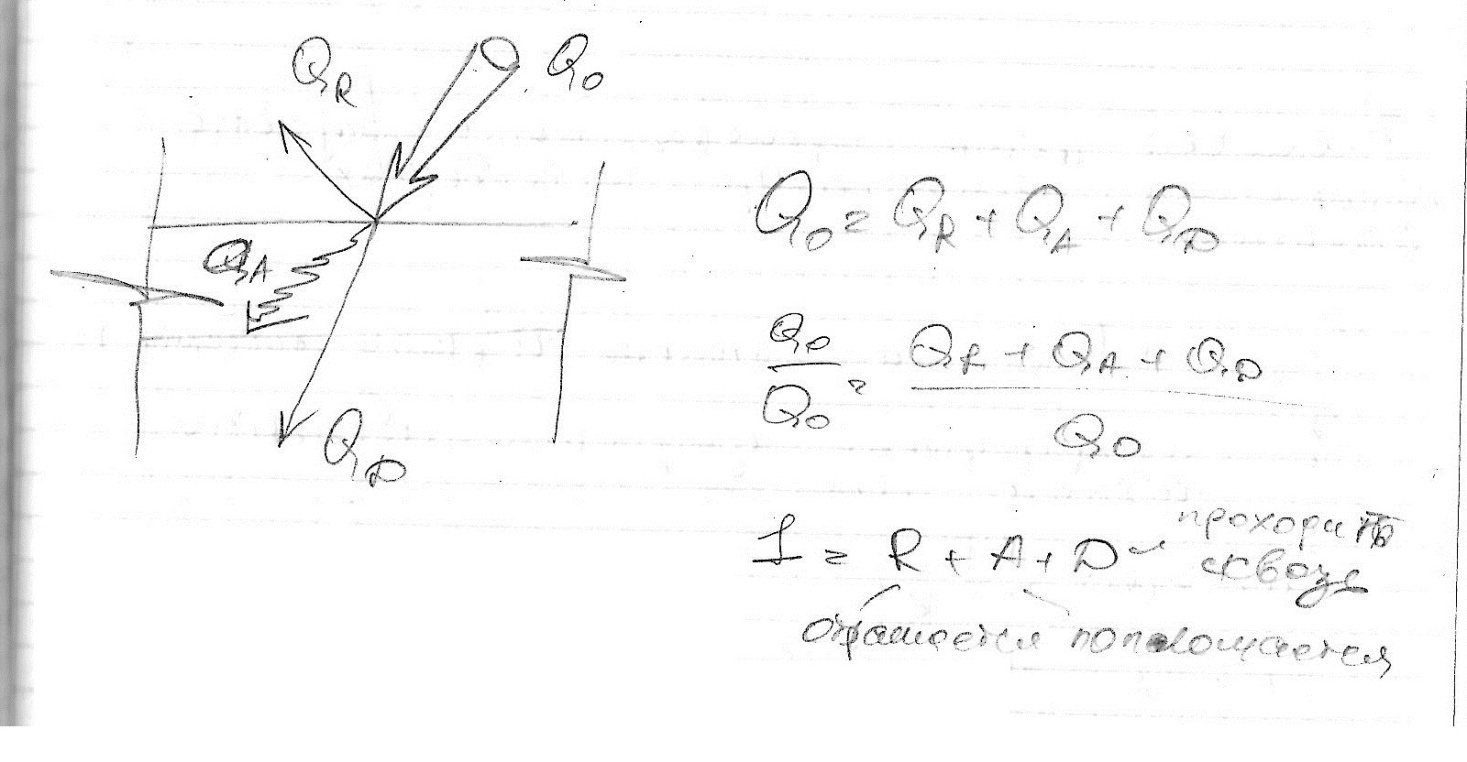 Q_R
Q_0
Q_A
Q_D
Q_0 = Q_R + Q_A + Q_D
Q_0/Q_0 = (Q_R + Q_A + Q_D)/Q_0
1 = R + A + D
проходит
сквозь
отражается поглощается